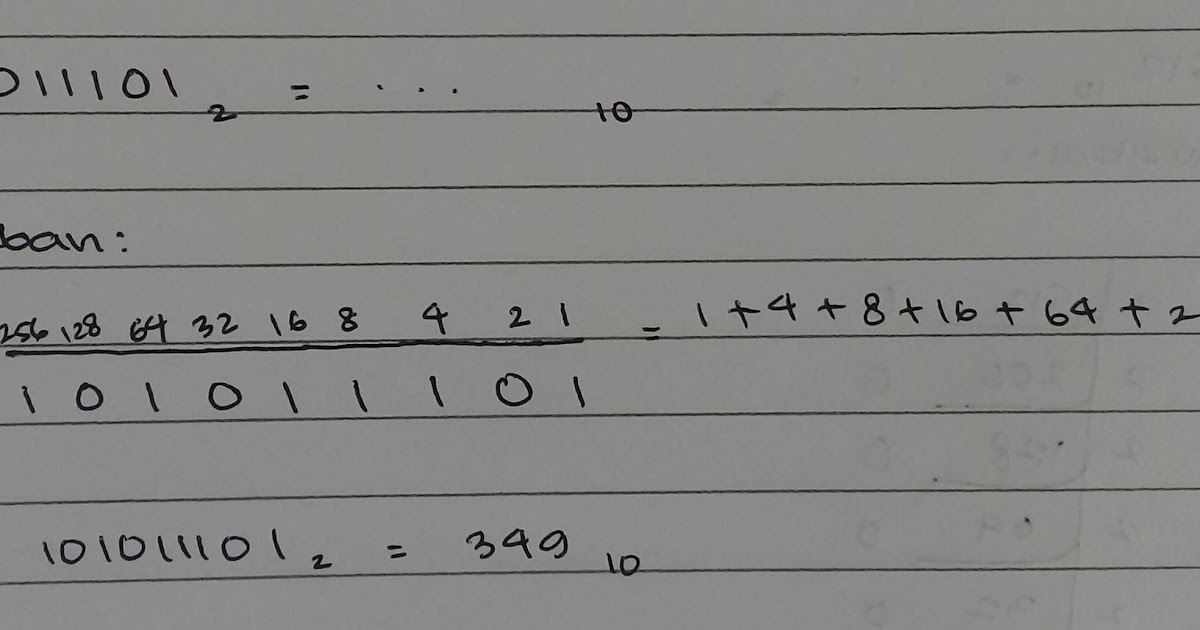 011101 2 = ... 10
ban:
256 128 64 32 16 8 4 2 1 = 1 + 4 + 8 + 16 + 64 + 2
1 0 1 0 1 1 1 0 1
101011101 2 = 349 10